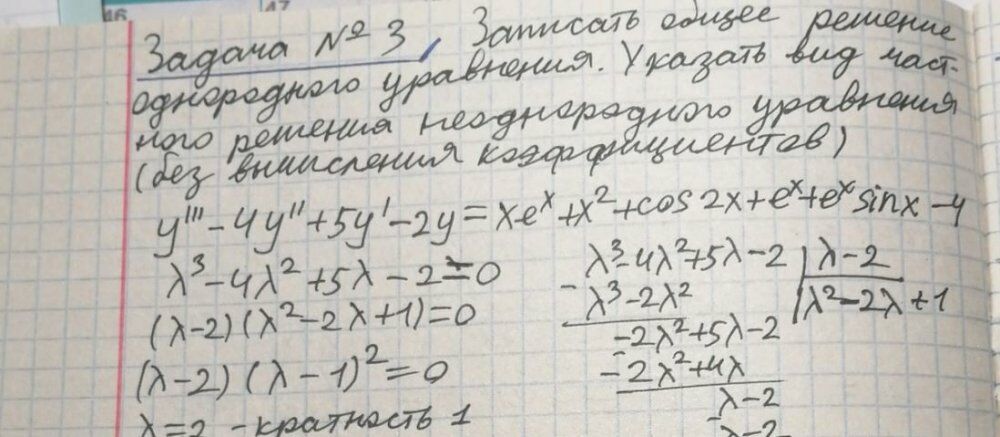 46
47
Задача № 3. Записать общее решение
однородного уравнения. Указать вид част-
ного решения неоднородного уравнения
(без вычисления коэффициентов)
y''' - 4y'' + 5y' - 2y = xeˣ + x² + cos 2x + eˣ + eˣ sinx - 4
λ³ - 4λ² + 5λ - 2 = 0
(λ-2)(λ² - 2λ + 1) = 0
(λ-2)(λ-1)² = 0
λ=2 - кратность 1
λ³ - 4λ² + 5λ - 2 | λ - 2
- λ³ - 2λ² | λ² - 2λ + 1
-2λ² + 5λ - 2
- -2λ² + 4λ
λ - 2
- λ - 2